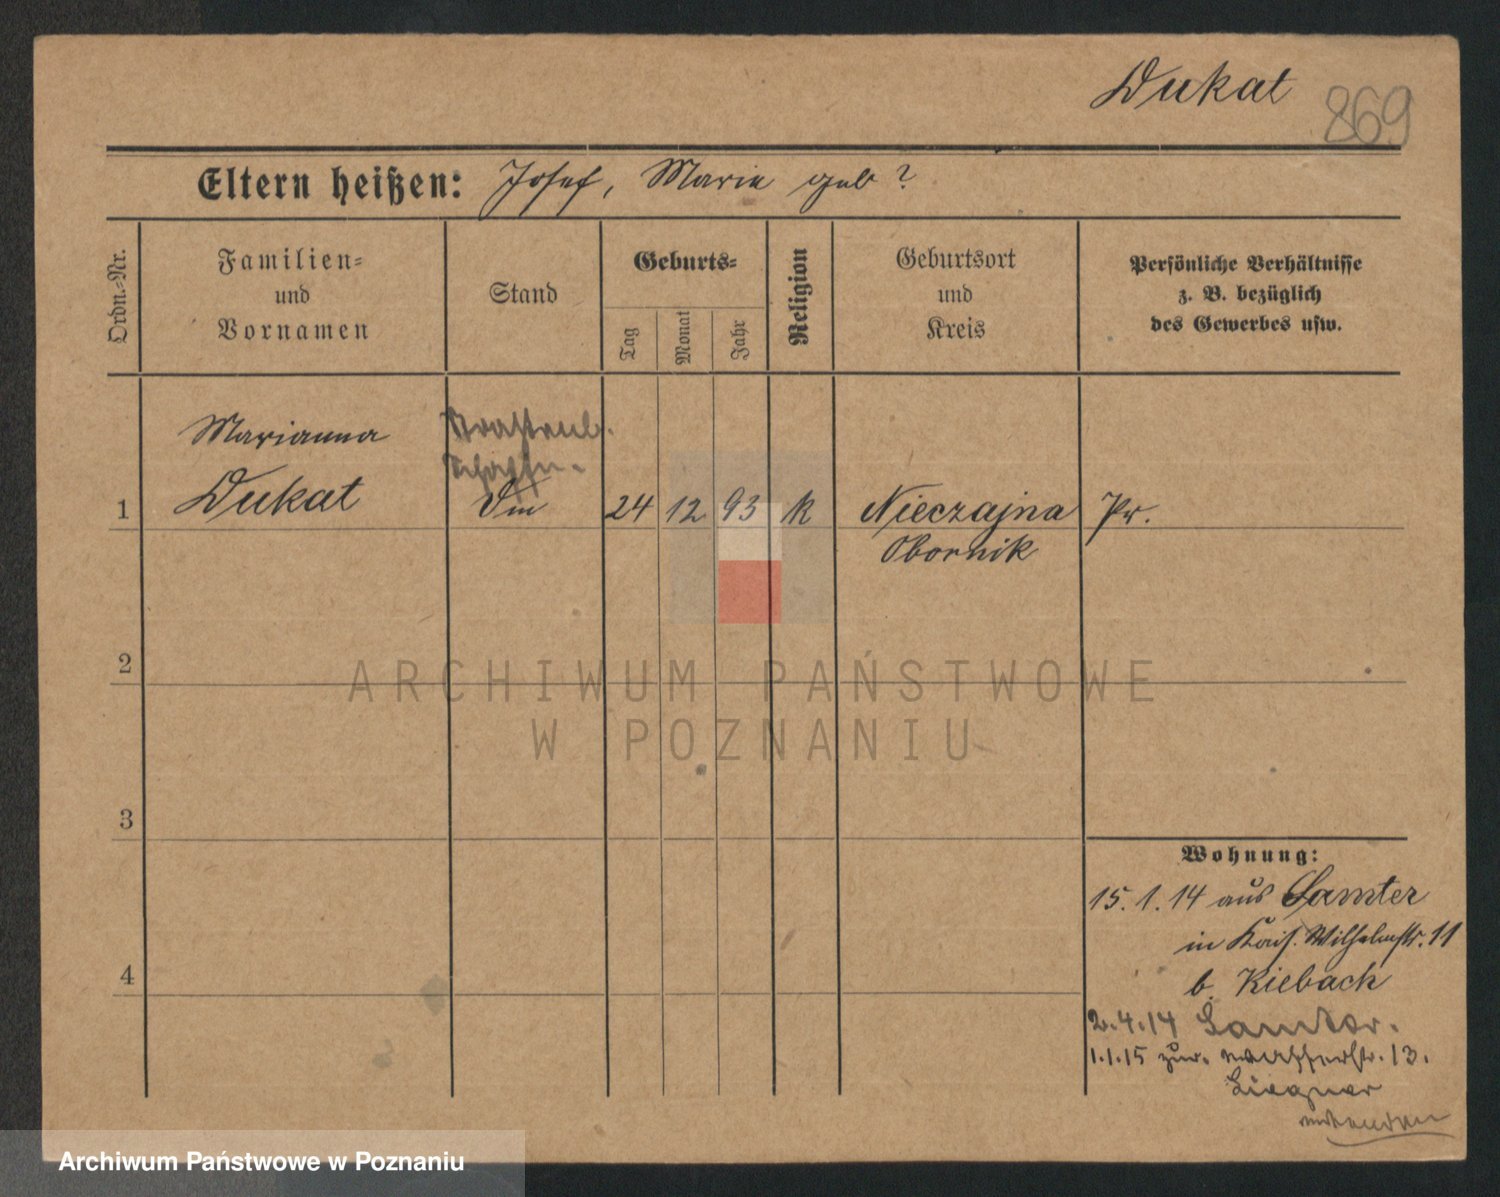 Dukat 869
Eltern heißen: Josef, Marie geb ?
Ordn.-Nr.
Familien-
und
Vornamen
Stand
Geburts-
Tag
Monat
Jahr
Religion
Geburtsort
und
Kreis
Persönliche Verhältnisse
z. B. bezüglich
des Gewerbes usw.
Marianna
Straßenb.
Schaffn.
1 Dukat 24 12 93 k Nieczajna Pr.
Obornik
2
3
4
Wohnung:
15. 1. 14 aus Samter
in Kais. Wilhelmstr. 11
b. Kiebach
2.4.14 Samter.
1.1.15 zur. Wasserstr. 13.
ARCHIWUM PAŃSTWOWE
W POZNANIU
Archiwum Państwowe w Poznaniu